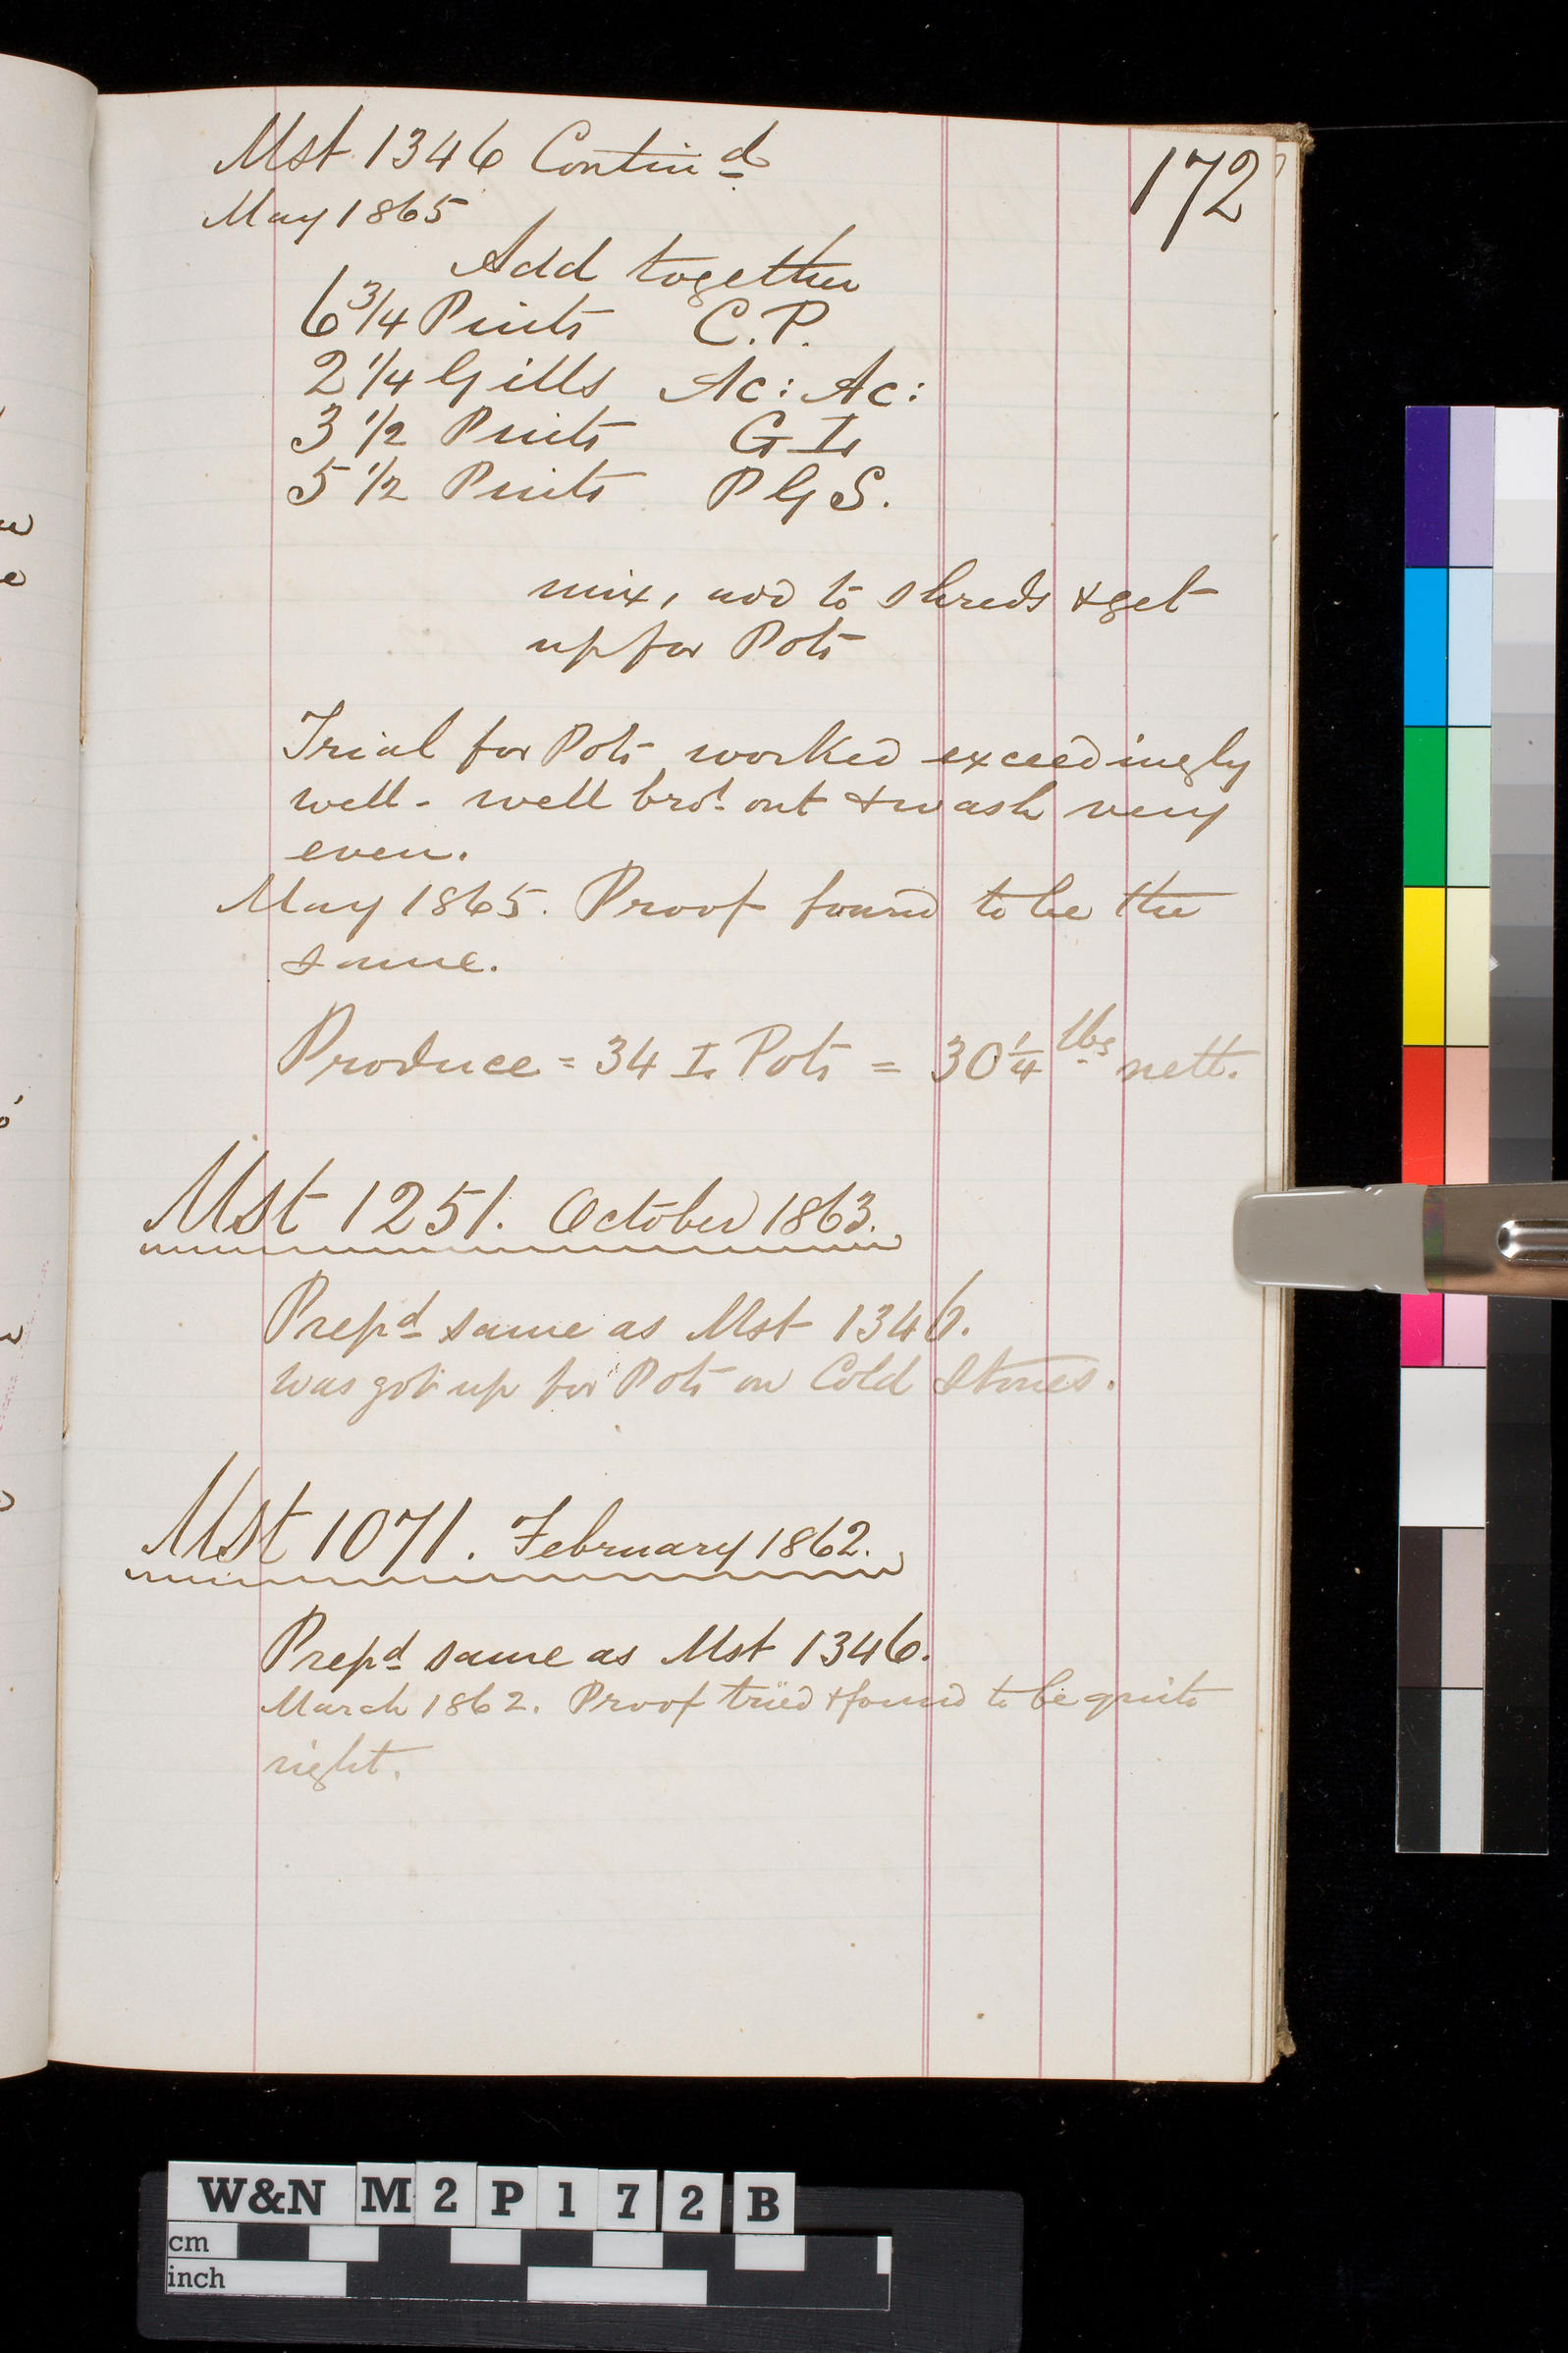 172
Mst 1346 Contin d
May 1865
Add together
6 3/4 Pints C.P.
2 1/4 Gills Ac: Ac:
3 1/2 Pints G I.
5 1/2 Pints P G S.
mix, add to shreds & get
up for Pots
Trial for Pots worked exceedingly
well - well bro.t out & wash very
even.
May 1865. Proof found to be the
same.
Produce = 34 I. Pots = 30 1/4 lbs nett.
Mst 1251. October 1863.
Prepd same as Mst 1346.
was got up for Pots on Cold Stones.
Mst 1071. February 1862.
Prepd same as Mst 1346.
March 1862. Proof tried & found to be quite
right.
W&N M2P172B
cm
inch